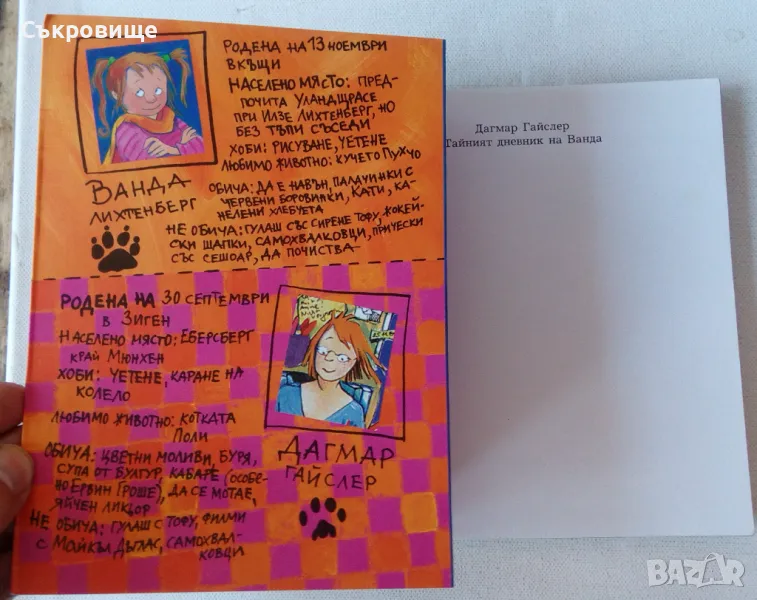 Съкровище
РОДЕНА НА 13 НОЕМВРИ
ВКЪЩИ
НАСЕЛЕНО МЯСТО: ПРЕД-
ПОЧИТА УЛАНДЩРАСЕ
ПРИ ИЛЗЕ ЛИХТЕНБЕРГ, НО
БЕЗ ТЪПИ СЪСЕДИ
ХОБИ: РИСУВАНЕ, ЧЕТЕНЕ
ЛЮБИМО ЖИВОТНО: КУЧЕТО ПУХЧО
ВАНДА
ЛИХТЕНБЕРГ
ОБИЧА: ДА Е НАВЪН, ПАЛАЧИНКИ С
ЧЕРВЕНИ БОРОВИНКИ, КАТИ, КА-
НЕЛЕНИ ХЛЕБЧЕТА
НЕ ОБИЧА: ГУЛАШ СЪС СИРЕНЕ ТОФУ, ЖОКЕЙ-
СКИ ШАПКИ, САМОХВАЛКОВЦИ, ПРИЧЕСКИ
СЪС СЕШОАР, ДА ПОЧИСТВА
РОДЕНА НА 30 СЕПТЕМВРИ
В ЗИГЕН
НАСЕЛЕНО МЯСТО: ЕБЕРСБЕРГ
КРАЙ МЮНХЕН
ХОБИ: ЧЕТЕНЕ, КАРАНЕ НА
КОЛЕЛО
ЛЮБИМО ЖИВОТНО: КОТКАТА
ПОЛИ
ОБИЧА: ЦВЕТНИ МОЛИВИ, БУРЯ,
СУПА ОТ БУЛГУР, КАБАРЕ (ОСОБЕ-
НО ЕРВИН ГРОШЕ), ДА СЕ МОТАЕ,
ЯЙЧЕН ЛИКЬОР
НЕ ОБИЧА: ГУЛАШ С ТОФУ, ФИЛМИ
С МАЙКЪЛ ДЪГЛАС, САМОХВАЛ-
КОВЦИ
ДАГМАР
ГАЙСЛЕР
Дагмар Гайслер
Тайният дневник на Ванда
BAZAR